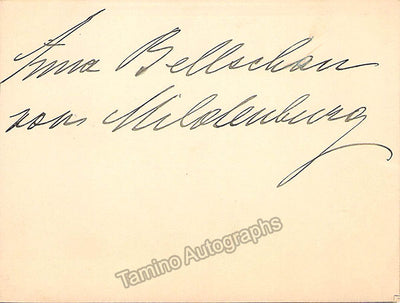 Anna Bellschan
von Mildenburg
Tamino Autographs